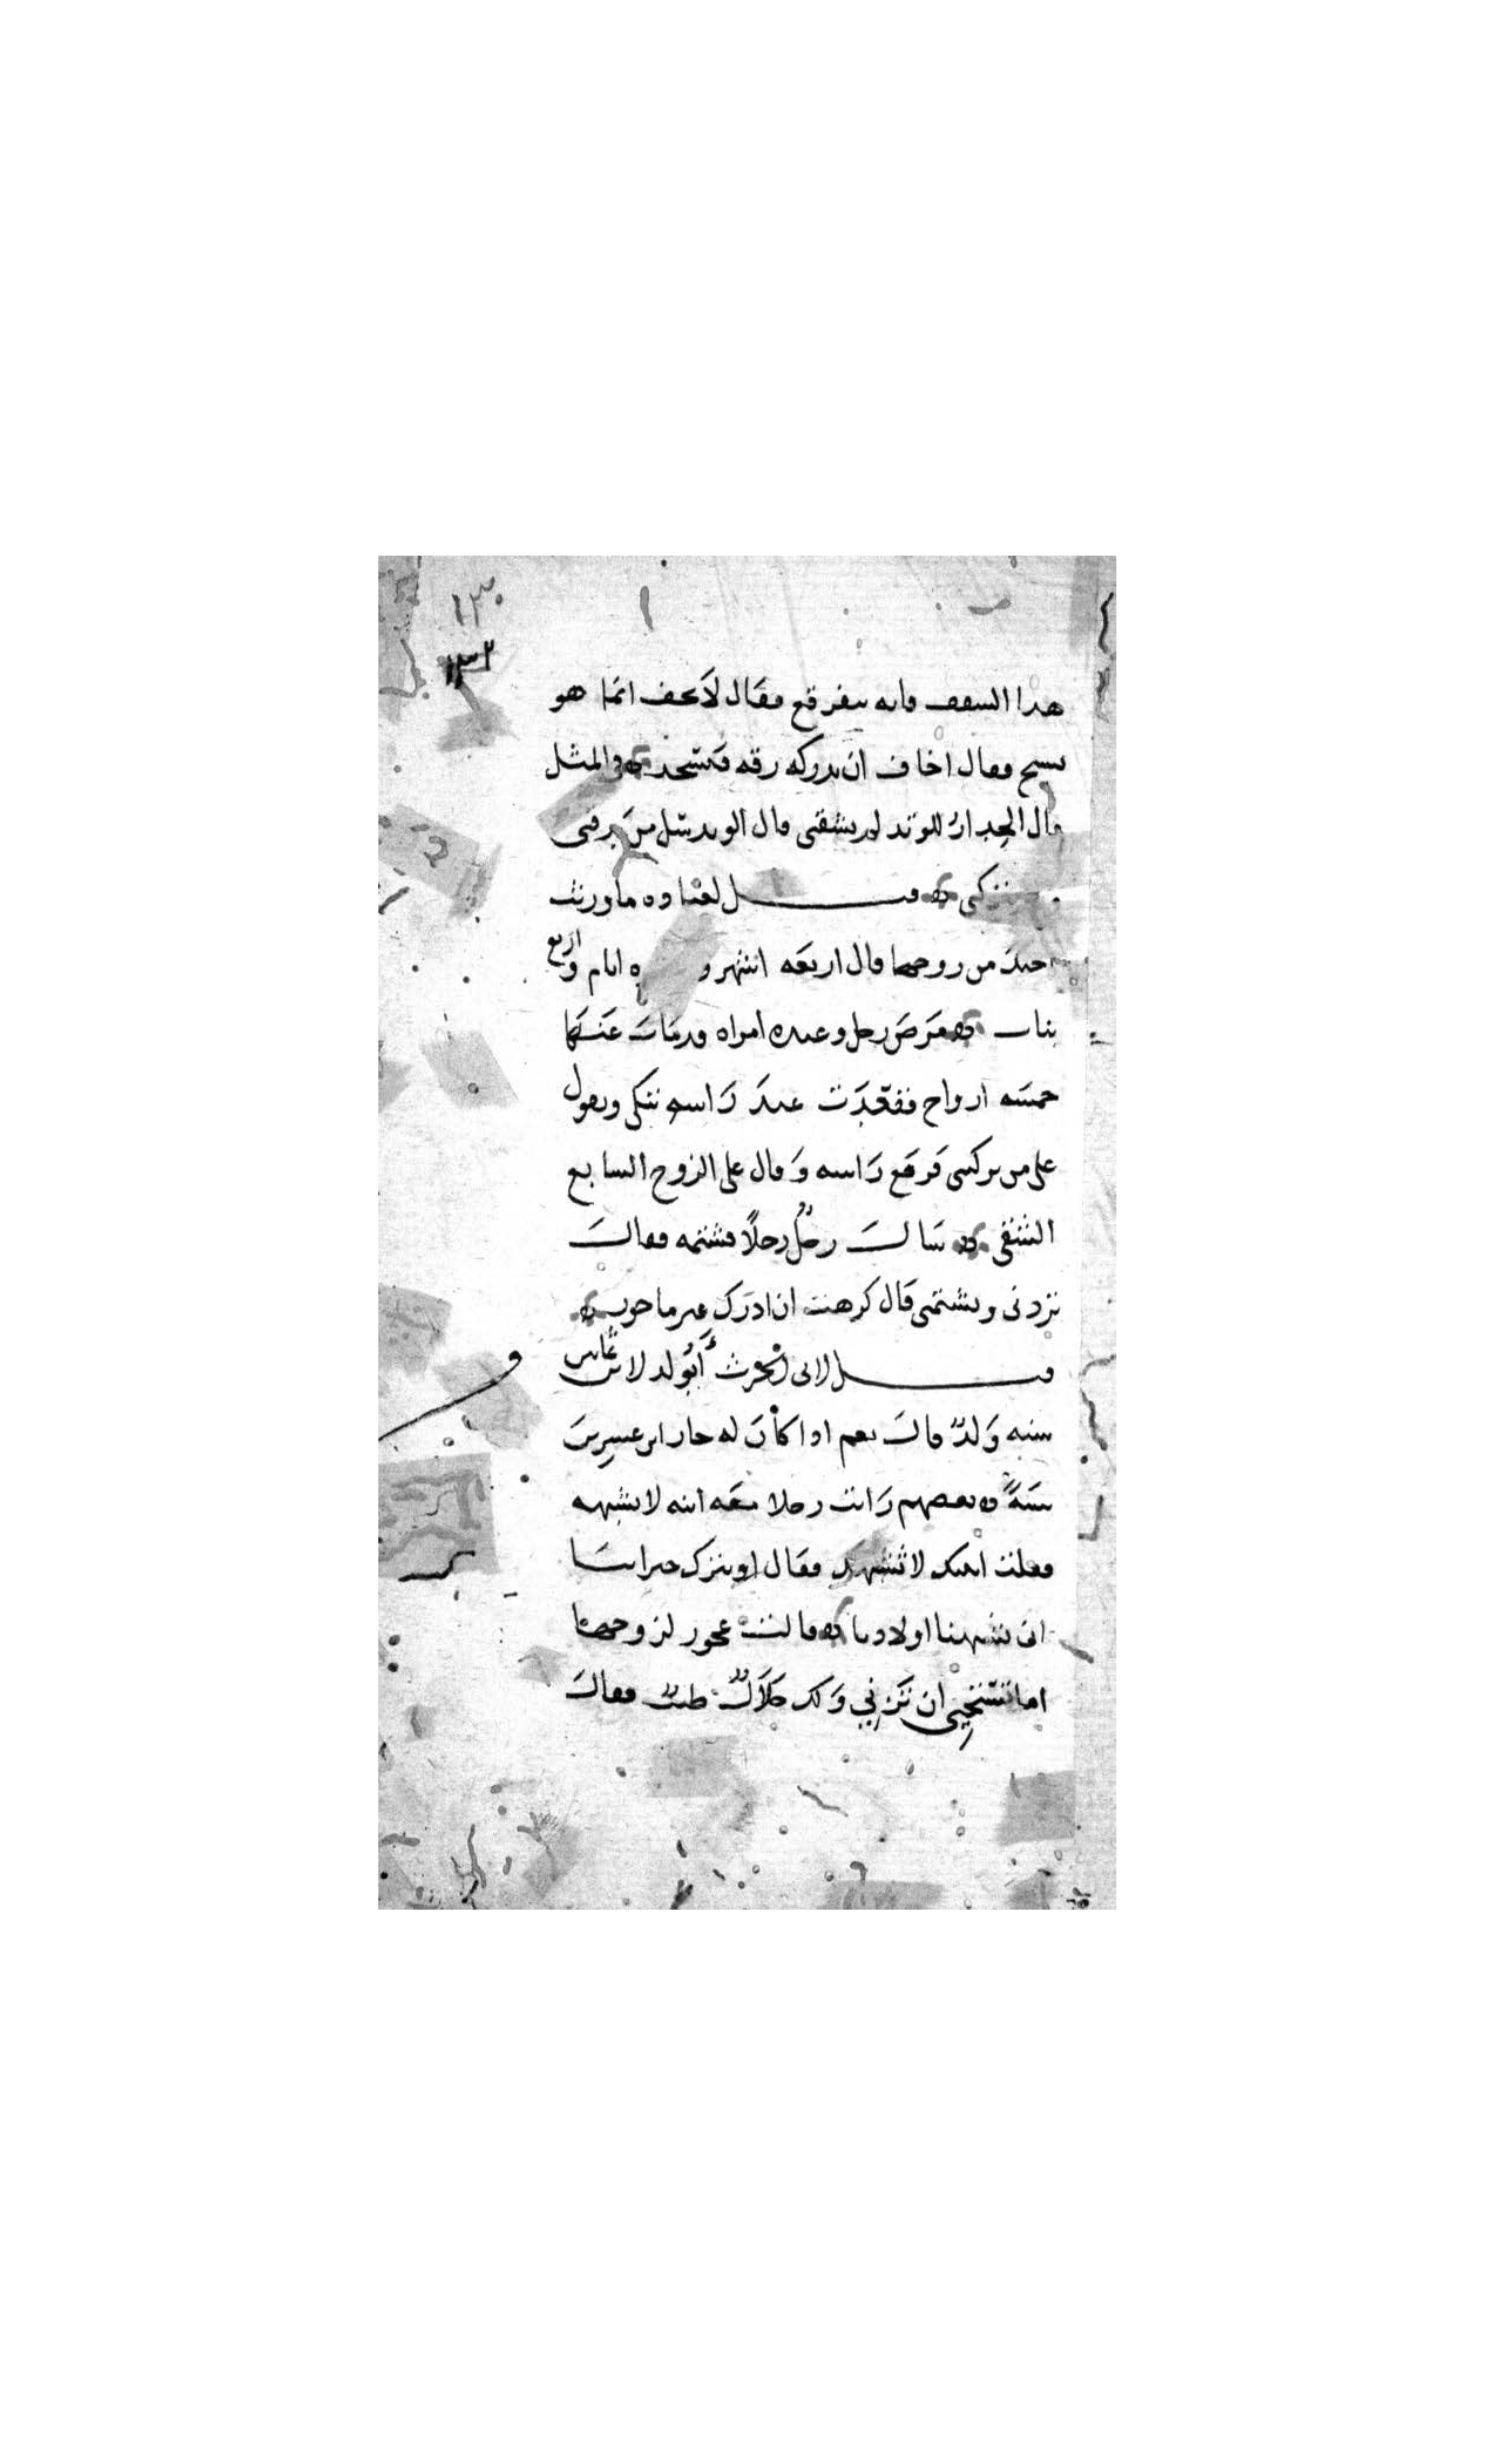 ١٣٠
١٣٢
هذا السقف فانه يتفرقع فقال لا تخف انما هو
يسبح فقال اخاف ان تدركه رقه فيسجد في المثل
قال الجدار للوتد لم تشقني قال الوتد سل من يدقني
يتركني قيل لعباده ما ورثت
اختك من زوجها قال اربعه اشهر و ايام واربع
بنات مرض رجل وعنده امراه قد مات عنها
خمسه ازواج فقعدت عند راسه تبكي وتقول
على من تركتني فرفع راسه وقال على الزوج السابع
الشقي سال رجل رجلا فشتمه فقال
تردني وتشتمني قال كرهت ان اردك غير ماجور
قيل لابي الحرث أيولد لابن ثمانين
سنه ولد قال نعم اذا كان له جار ابن عشرين
سنة بعضهم رايت رجلا معه ابنه لا يشبهه
فقلت ابنك لا يشبهك فقال او يترك جيراننا
ان تشبهنا اولادنا قالت عجوز لزوجها
اما تستحيي ان تزني ولك حلال طيب فقال